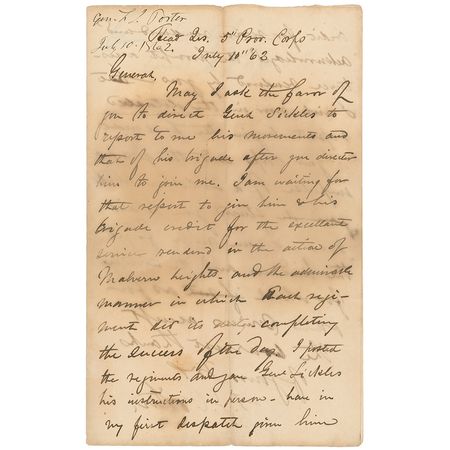 Gen. F. J. Porter
July 10. 1862.
Head Qrs. 5th Prov. Corps
July 10" 62
General,
May I ask the favor of
you to direct Genl Sickles to
report to me his movements and
that of his brigade after you directed
him to join me. I am waiting for
that report to give him & his
brigade credit for the excellent
service rendered in the action of
Malvern heights - and the admirable
manner in which each regi-
ment did its completing
the success of the day. I posted
the regiments and gave Genl Sickles
his instructions in person - have in
my first dispatch given him